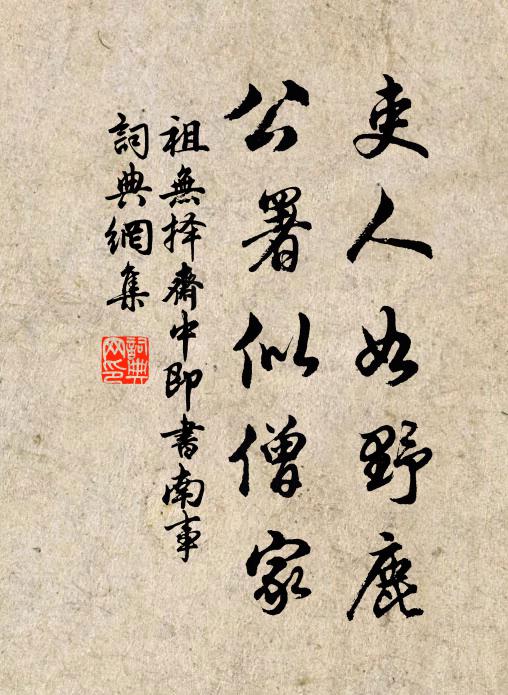 吏人如野鹿
公署似僧家
祖無择齋中即書南事
詞典網集
詞典网印